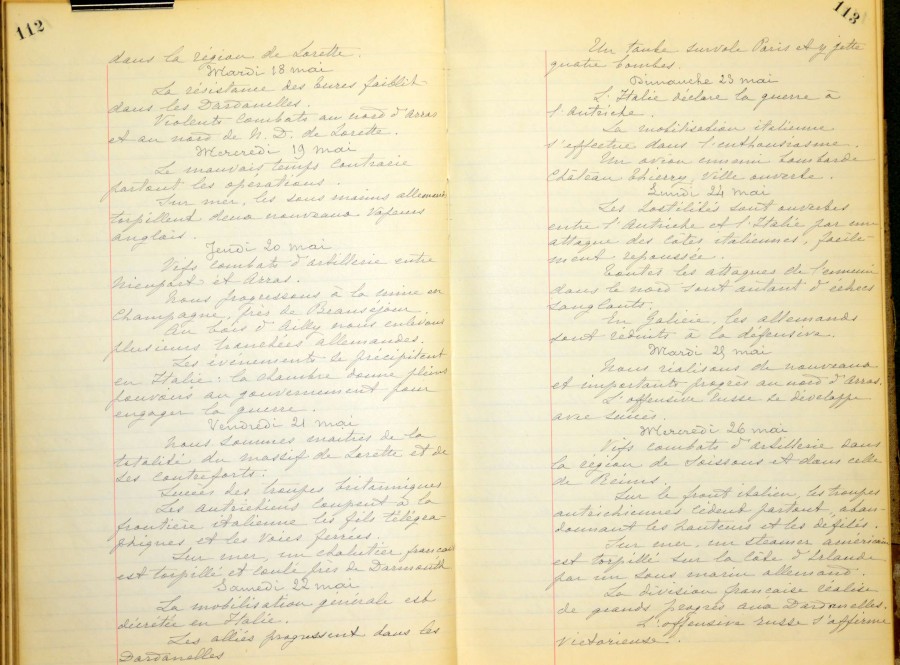 112
dans la région de Lorette.
Mardi 18 mai
La résistance des turcs faiblit
dans les Dardanelles.
Violents combats au nord d'Arras
et au nord de N. D. de Lorette.
Mercredi 19 mai
Le mauvais temps contrarie
partout les opérations.
Sur mer, les sous marins allemands
torpillent deux nouveaux vapeurs
anglais.
Jeudi 20 mai
Vifs combats d'artillerie entre
Nieuport et Arras.
Nous progressons à la mine en
Champagne, près de Beauséjour.
Au bois d'Ailly nous enlevons
plusieurs tranchées allemandes.
Les événements se précipitent
en Italie: la chambre donne pleins
pouvoirs au gouvernement pour
engager la guerre.
Vendredi 21 mai
Nous sommes maîtres de la
totalité du massif de Lorette et de
ses contreforts.
Succès des troupes britanniques
Les autrichiens coupent à la
frontière italienne les fils télégra-
phiques et les voies ferrées.
Sur mer, un chalutier français
est torpillé et coulé près de Darmouth
Samedi 22 mai
La mobilisation générale est
décrétée en Italie.
Les alliés progressent dans les
Dardanelles
113
Un taube survole Paris et y jette
quatre bombes.
Dimanche 23 mai
L'Italie déclare la guerre à
l'Autriche.
La mobilisation italienne
s'effectue dans l'enthousiasme.
Un avion ennemi bombarde
Château Thierry, ville ouverte.
Lundi 24 mai
Les hostilités sont ouvertes
entre l'Autriche et l'Italie par une
attaque des côtes italiennes, facile-
ment repoussée.
Toutes les attaques de l'ennemi
dans le nord sont autant d'échecs
sanglants.
En Galicie, les allemands
sont réduits à la défensive.
Mardi 25 mai
Nous réalisons de nouveaux
et importants progrès au nord d'Arras.
L'offensive russe se développe
avec succès.
Mercredi 26 mai
Vifs combats d'artillerie dans
la région de Soissons et dans celle
de Reims.
Sur le front italien, les troupes
autrichiennes cèdent partout, aban-
donnant les hauteurs et les défilés.
Sur mer, un steamer américain
est torpillé sur la côte d'Irlande
par un sous marin allemand.
La division française réalise
de grands progrès aux Dardanelles.
L'offensive russe s'affirme
victorieuse.